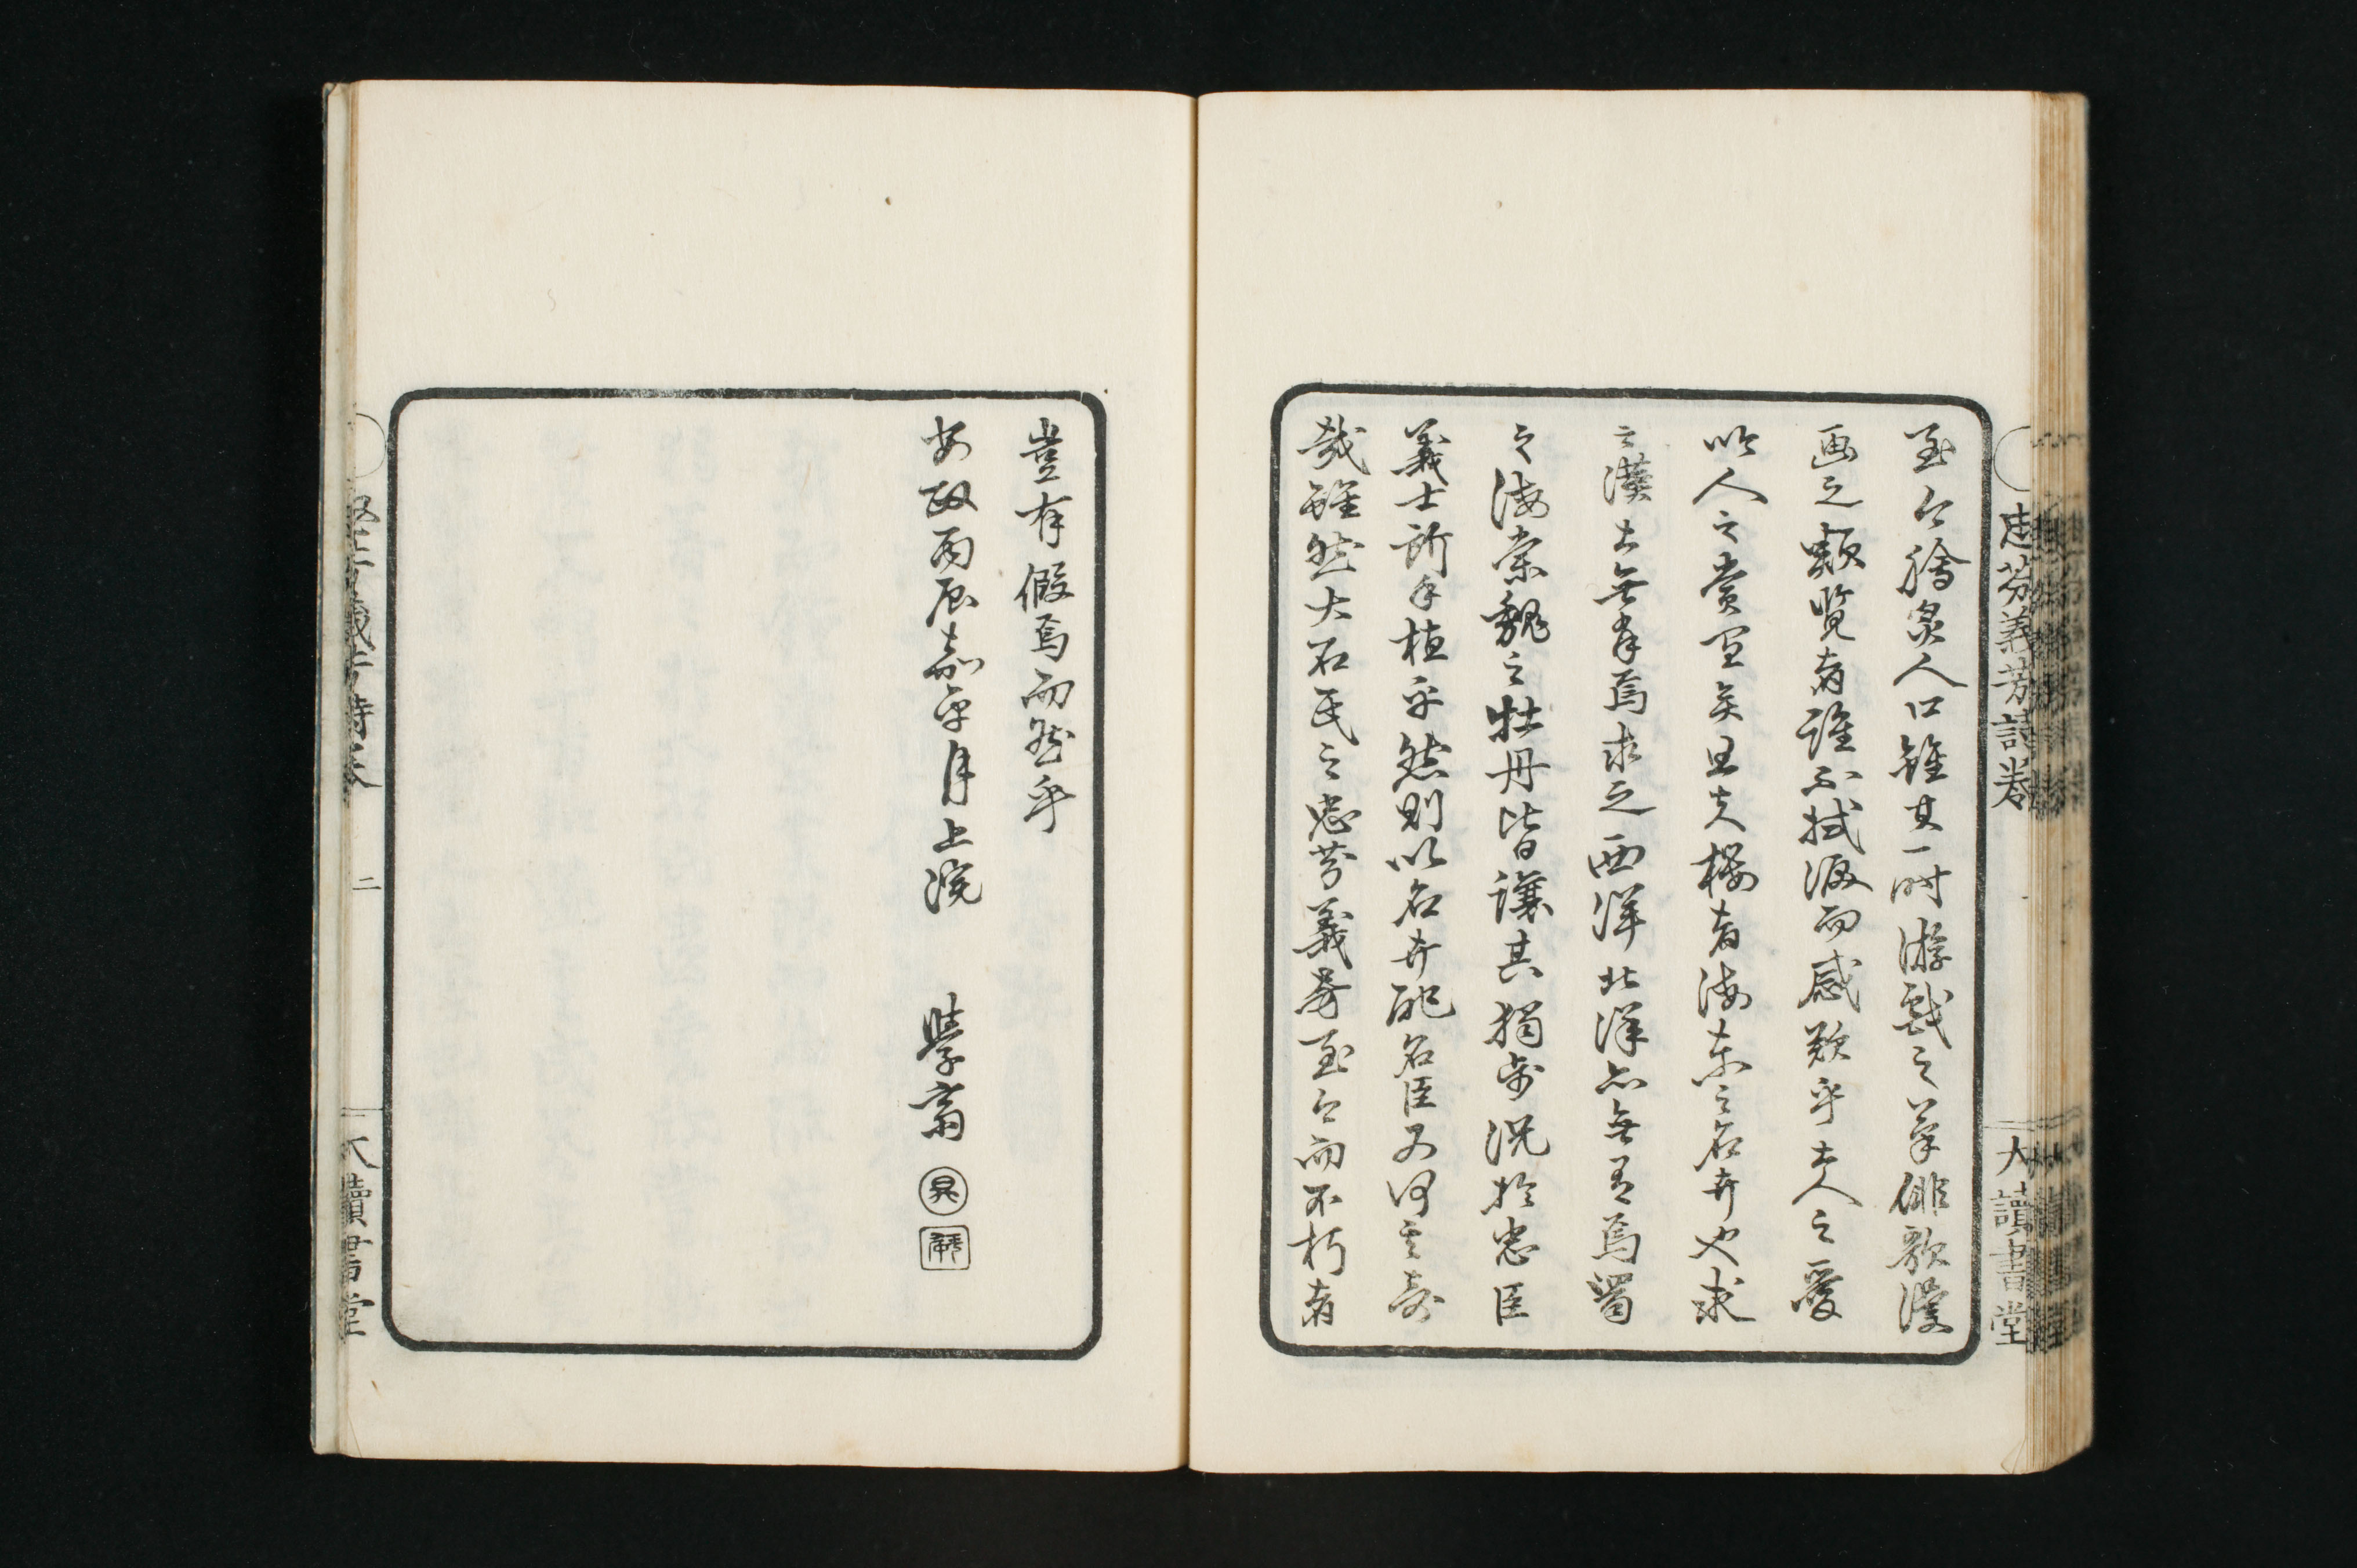 至今膾炙人口雖其一時游戲之筆俳歌漫
画之類覽者誰不拭淚而感歎乎夫人之愛
以人之賞宜矣且夫櫻者海東之名卉也求
之漢土無有焉求之西洋北洋亦無有焉蜀
之海棠魏之牡丹皆讓其獨步況於忠臣
義士所手植乎然則以名卉配名臣又何其奇
哉雖然大石氏之忠芬義芳至今而不朽者
豈有假焉而然乎
安政丙辰嘉平月上浣 學齋
忠芬義芳詩卷
大讀書堂
忠芬義芳詩卷 二
大讀書堂